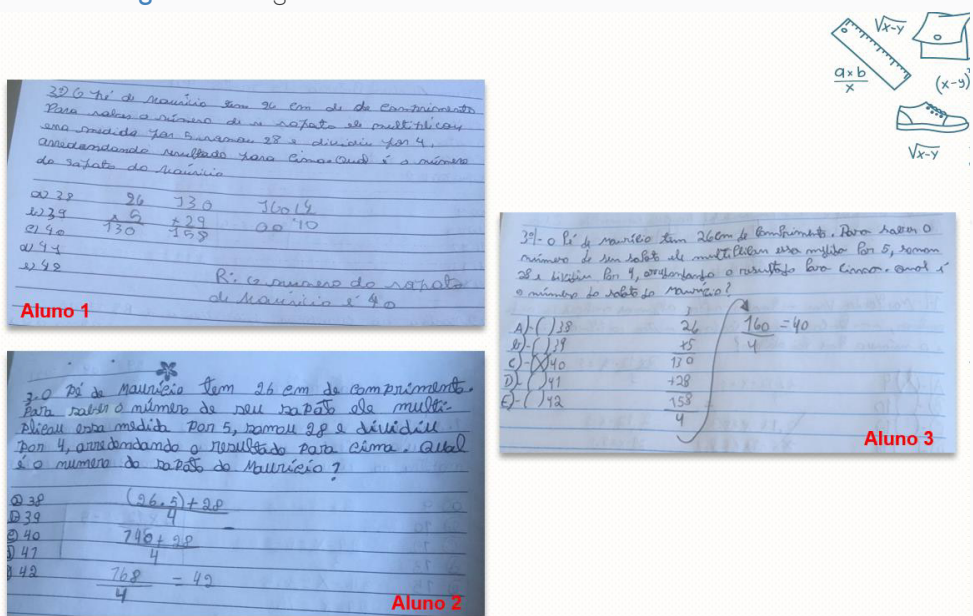 √x-y
a×b
x
(x-y)
√x-y
3º) O Pé de Maurício tem 26 cm de de comprimento
Para saber o número de se sapato ele multiplicou
essa medida por 5, somou 28 e dividiu por 4,
arredondando resultado para cima. Qual é o número
do sapato do Maurício
a) 38
b) 39
c) 40
d) 41
e) 42
26
×5
130
130
+28
158
160 | 4
00 40
R: O número do sapato
de Maurício é 40
Aluno 1
3. O Pé de Maurício tem 26 cm de comprimento.
Para saber o número de seu sapato ele multi-
plicou essa medida por 5, somou 28 e dividiu
por 4, arredondando o resultado para cima. Qual
é o numero do sapato do Maurício?
a) 38
b) 39
c) 40
d) 41
42
(26.5)+28
4
140+28
4
168 = 42
4
Aluno 2
3º)- O Pé de Maurício tem 26cm de Comprimento. Para saber o
número de seu sapato ele multiplicou essa medida Por 5, somou
28 e dividiu Por 4, arredondando o resultado Para Cima. Qual é
o número do sapato do Maurício?
A)-( )38
B)-( )39
C)-(X)40
D)-( )41
E)-( )42
3
26
×5
130
+28
158
4
160 = 40
4
Aluno 3